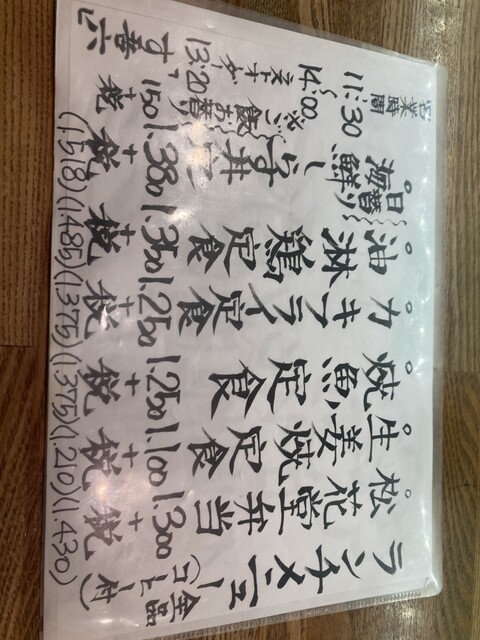 ランチメニュー
(全品コーヒー付)
○松花堂弁当 1.300+税 (1.430)
○生姜焼定食 1.100+税 (1.210)
○焼魚定食 1.250+税 (1.375)
○カキフライ定食 1.250+税 (1.375)
○油淋鶏定食 1.350+税 (1.485)
○日替り
海鮮 丼 1.380+税 (1.518)
※ご飯お替り 150+税
営業時間
11:30~14:00
ラストオーダー 13:20